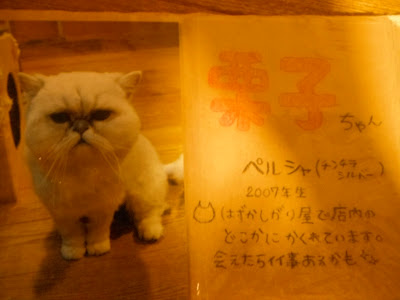 栗子
ちゃん
ペルシャ(チンチラ
シルバー)
2007年生
はずかしがり屋で店内の
どこかにかくれています。
会えたらイイ事あるかも